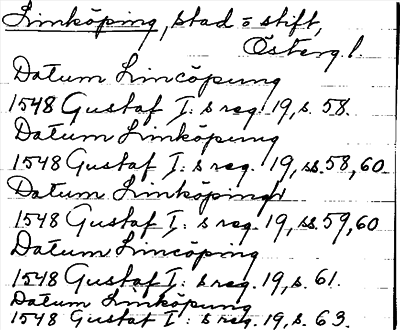 Linköping, stad o stift,
Österg l.
Datum Lincöpung
1548 Gustaf I: s reg. 19, s. 58.
Datum Linköpung
1548 Gustaf I: s reg. 19, ss. 58, 60
Datum Linköping
1548 Gustaf I: s reg. 19, ss. 59, 60
Datum Lincöping
1548 Gustaf I: s reg. 19, s. 61.
Datum Linköpung
1548 Gustaf I: s reg. 19, s. 63.